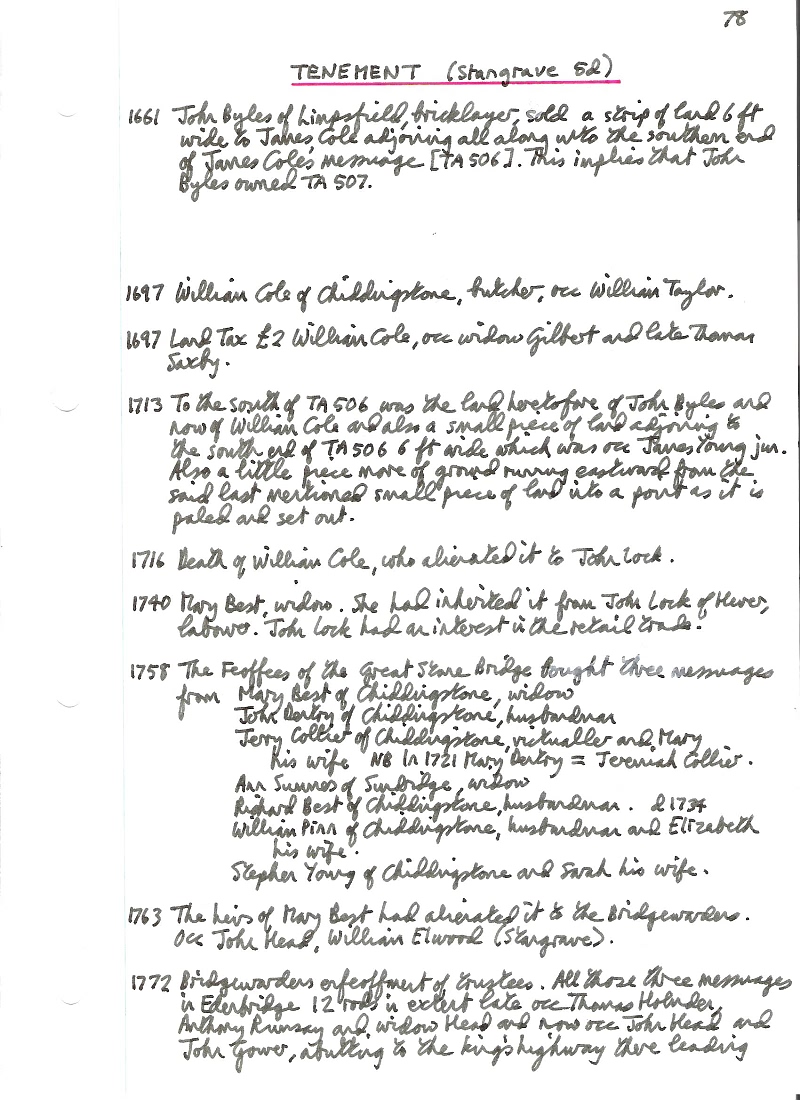 78
TENEMENT (Stangrave 5d)
1661 John Byles of Limpsfield, bricklayer, sold a strip of land 6 ft
wide to James Cole adjoining all along unto the southern end
of James Cole's messuage [TA 506]. This implies that John
Byles owned TA 507.
1697 William Cole of Chiddingstone, butcher, occ William Taylor.
1697 Land Tax £2 William Cole, occ widow Gilbert and late Thomas
Saxby.
1713 To the south of TA 506 was the land heretofore of John Byles and
now of William Cole and also a small piece of land adjoining to
the south end of TA 506 6 ft wide which was occ James Young jun.
Also a little piece more of ground running eastward from the
said last mentioned small piece of land into a point as it is
paled and set out.
1716 Death of William Cole, who alienated it to John Lock.
1740 Mary Best, widow. She had inherited it from John Lock of Hever,
labourer. John Lock had an interest in the retail trade.
1758 The Feoffees of the Great Stone Bridge bought three messuages
from Mary Best of Chiddingstone, widow
John Dentry of Chiddingstone, husbandman
Jerry Collier of Chiddingstone, victualler and Mary
his wife NB In 1721 Mary Dentry = Jeremiah Collier.
Ann Summes of Sundridge, widow
Richard Best of Chiddingstone, husbandman. d 1734
William Pinn of Chiddingstone, husbandman and Elizabeth
his wife.
Stephen Young of Chiddingstone and Sarah his wife.
1763 The heirs of Mary Best had alienated it to the Bridgewardens.
Occ John Head, William Elwood (Stangrave).
1772 Bridgewardens enfeoffment of trustees. All those three messuages
in Edenbridge 12 rods in extent late occ Thomas Holmden,
Anthony Rumsay and widow Head and now occ John Head and
John Gower, abutting to the king's highway there leading